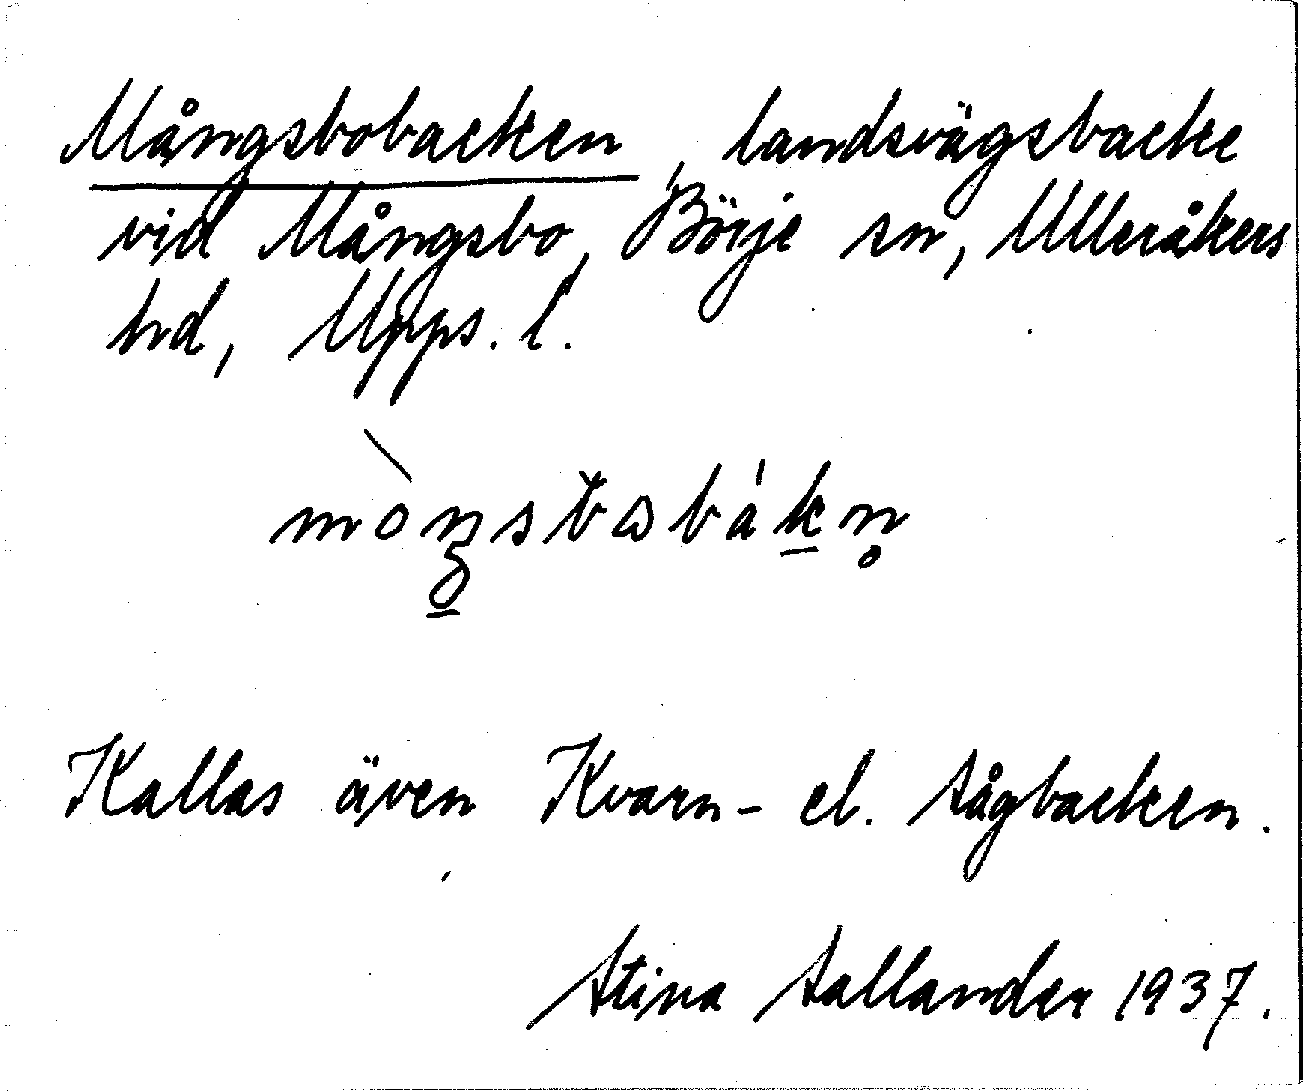 Mångsbobacken, landsvägsbacke
vid Mångsbo, Börje sn, Ulleråkers
hd, Upps. l.
Kallas även Kvarn- el. Sågbacken.
Stina Sallander 1937.